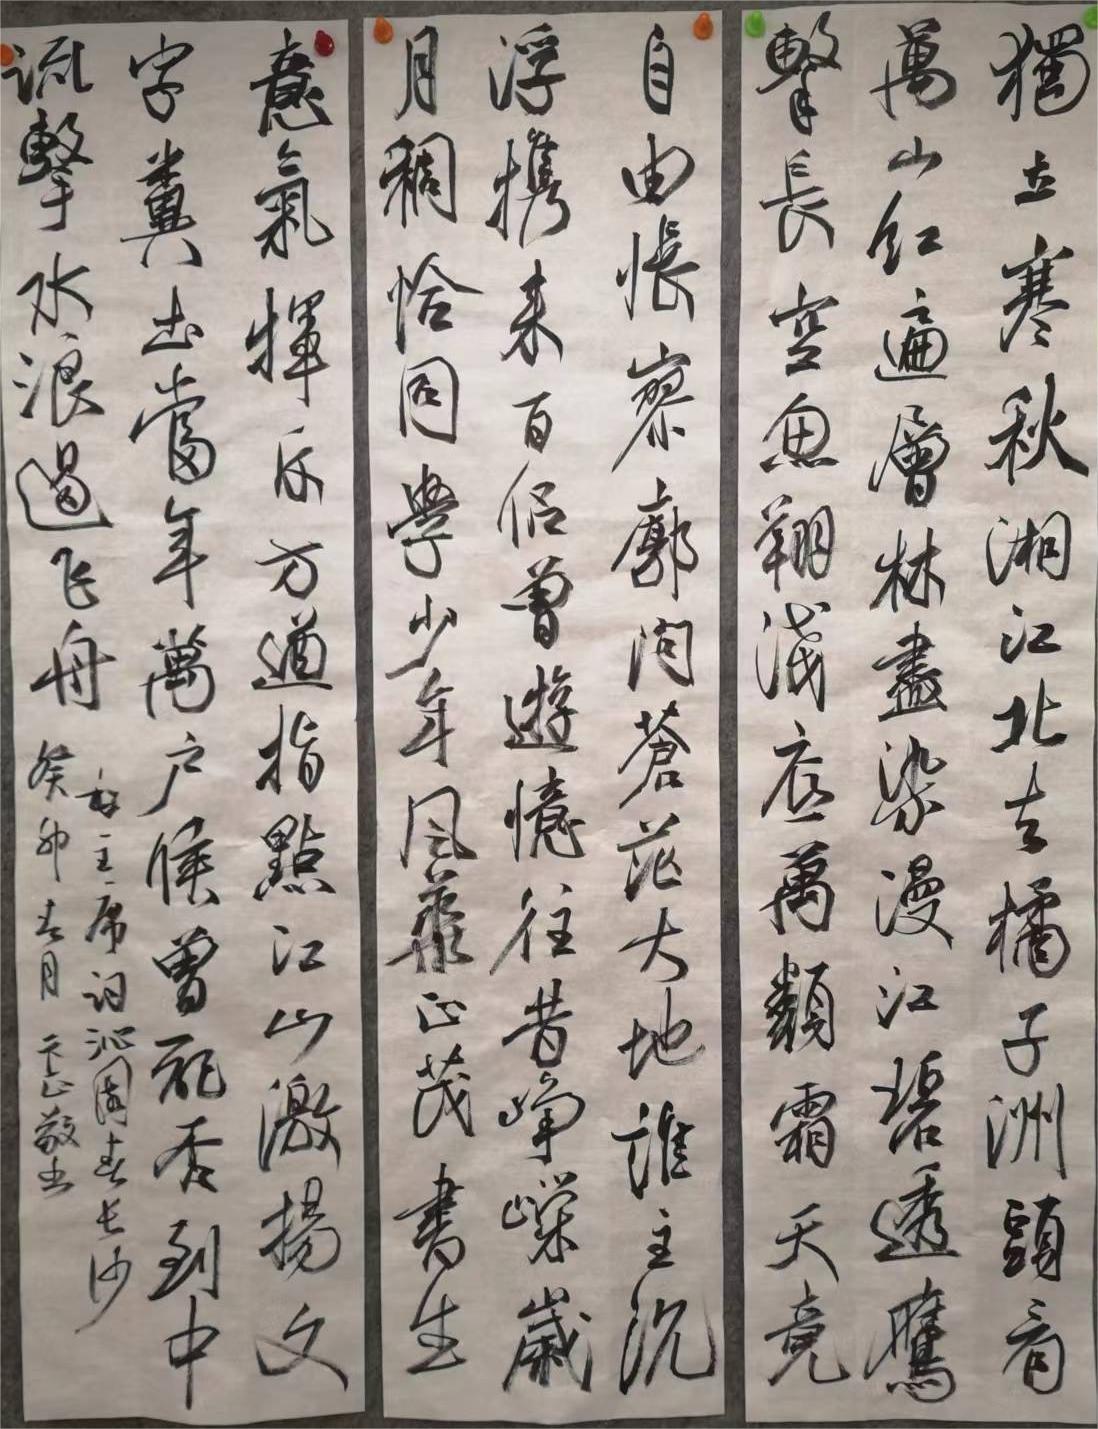 獨立寒秋湘江北去橘子洲頭看
萬山红遍層林盡染漫江碧透鷹
擊長空魚翔淺底萬類霜天竟
自由悵寥廓問蒼茫大地誰主沉
浮携来百侣曾遊憶往昔崢嶸歲
月稠恰同學少年风華正茂書生
意氣揮斥方遒指點江山激揚文
字糞土當年萬户侯曾記否到中
流擊水浪遏飞舟
主席词沁園春长沙
癸卯春月 敬书